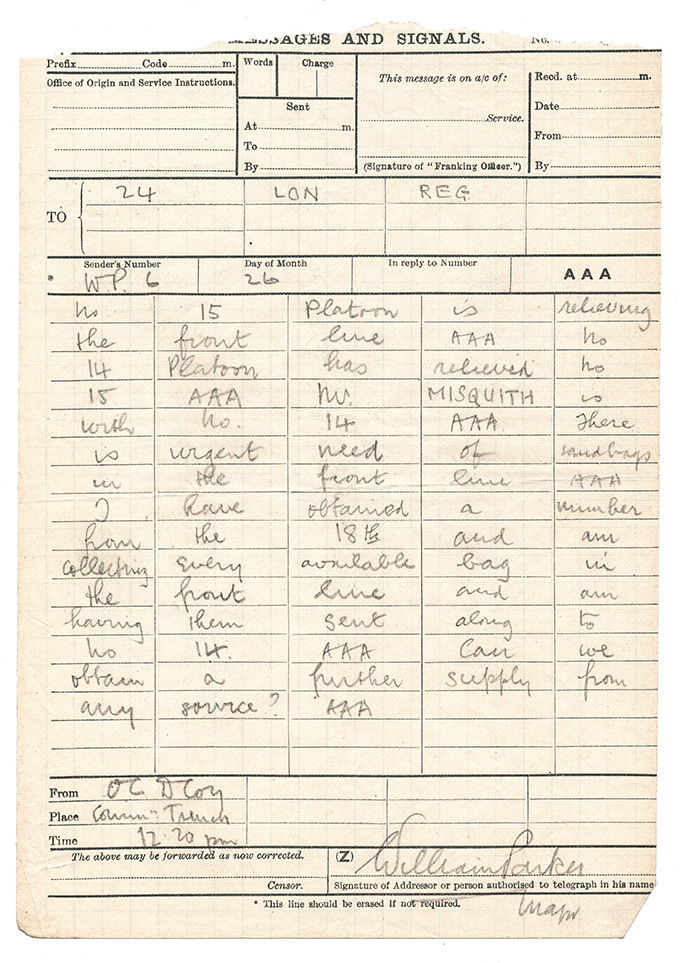 MESSAGES AND SIGNALS. No.
Prefix Code m. Words Charge This message is on a/c of: Recd. at m.
Office of Origin and Service Instructions. Date
Sent Service. From
At m.
To
By (Signature of "Franking Officer.") By
TO 24 LON REG
Sender's Number Day of Month In reply to Number AAA
* W.P. 6 26
No 15 Platoon is relieving
the front line AAA No
14 Platoon has relieved No
15 AAA Mr. MISQUITH is
with No. 14 AAA There
is urgent need of sandbags
in the front line AAA
I have obtained a number
from the 18th and am
collecting every available bag in
the front line and am
having them sent along to
No 14. AAA Can we
obtain a further supply from
any source? AAA
From O.C. D Coy
Place Commn Trench
Time 12.20 pm
The above may be forwarded as now corrected. (Z) William Parker
Censor. Signature of Addressor or person authorised to telegraph in his name
* This line should be erased if not required. Major